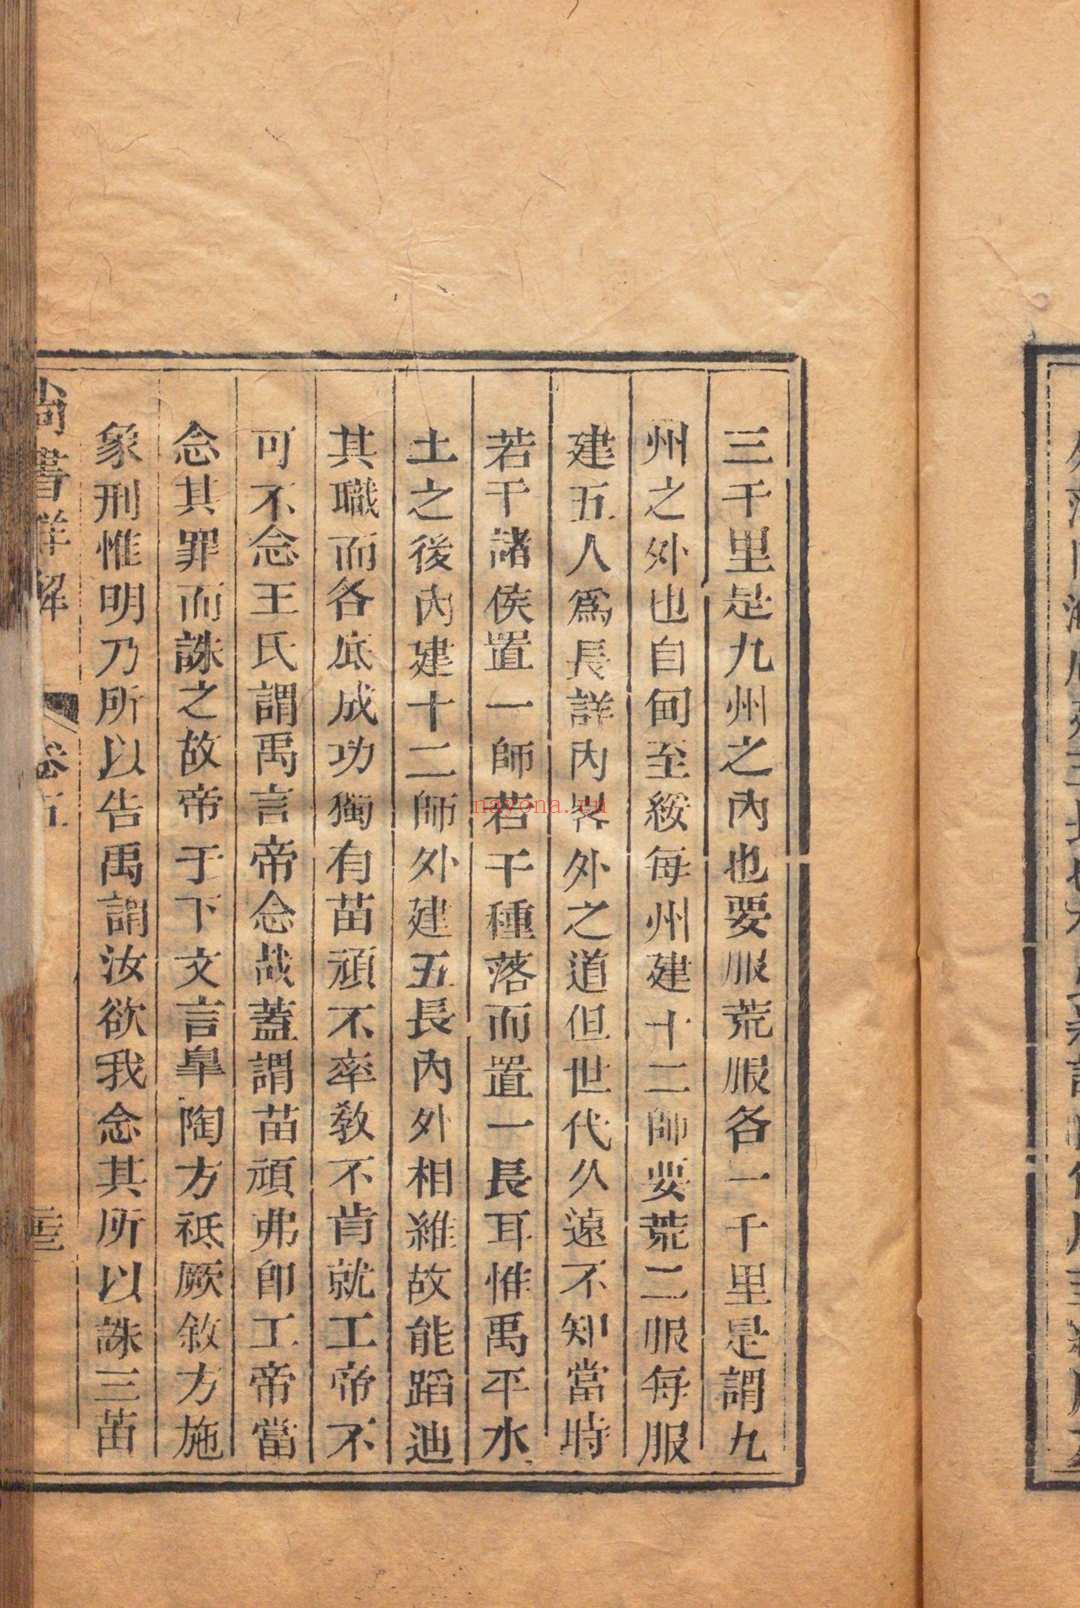 三千里是九州之內也要服荒服各一千里是謂九
州之外也自甸至綏每州建十二師要荒二服每服
建五人爲長詳內畧外之道但世代久遠不知當時
若干諸侯置一師若干種落而置一長耳惟禹平水
土之後內建十二師外建五長內外相維故能蹈迪
其職而各底成功獨有苗頑不率敎不肯就工帝不
可不念王氏謂禹言帝念哉蓋謂苗頑弗卽工帝當
念其罪而誅之故帝于下文言臯陶方祗厥敘方施
象刑惟明乃所以告禹謂汝欲我念其所以誅三苗
尚書詳解 卷五
navona.ru